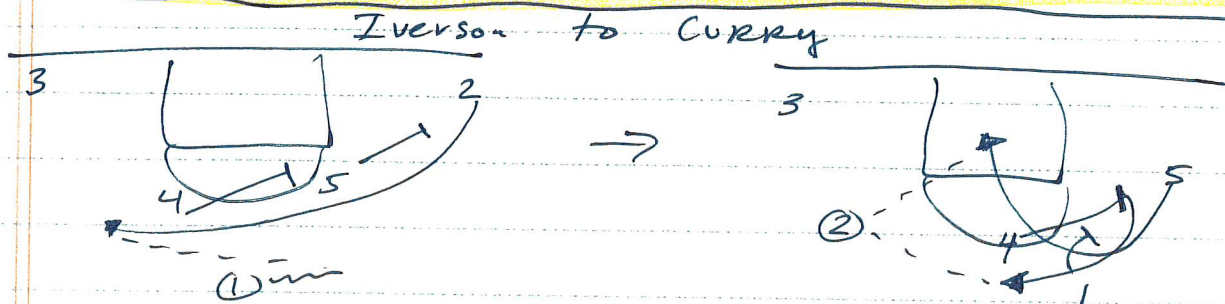 Iverson to Curry
3 2 3
5 5
4 2 4
1 1